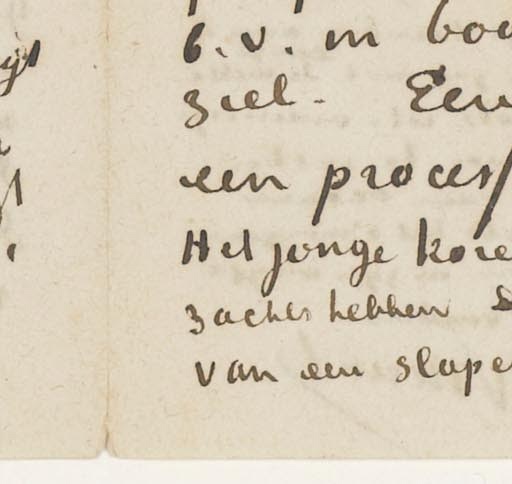 b.v. in boo
ziel. Een
een process
Het jonge kore
zachts hebben
van een slape